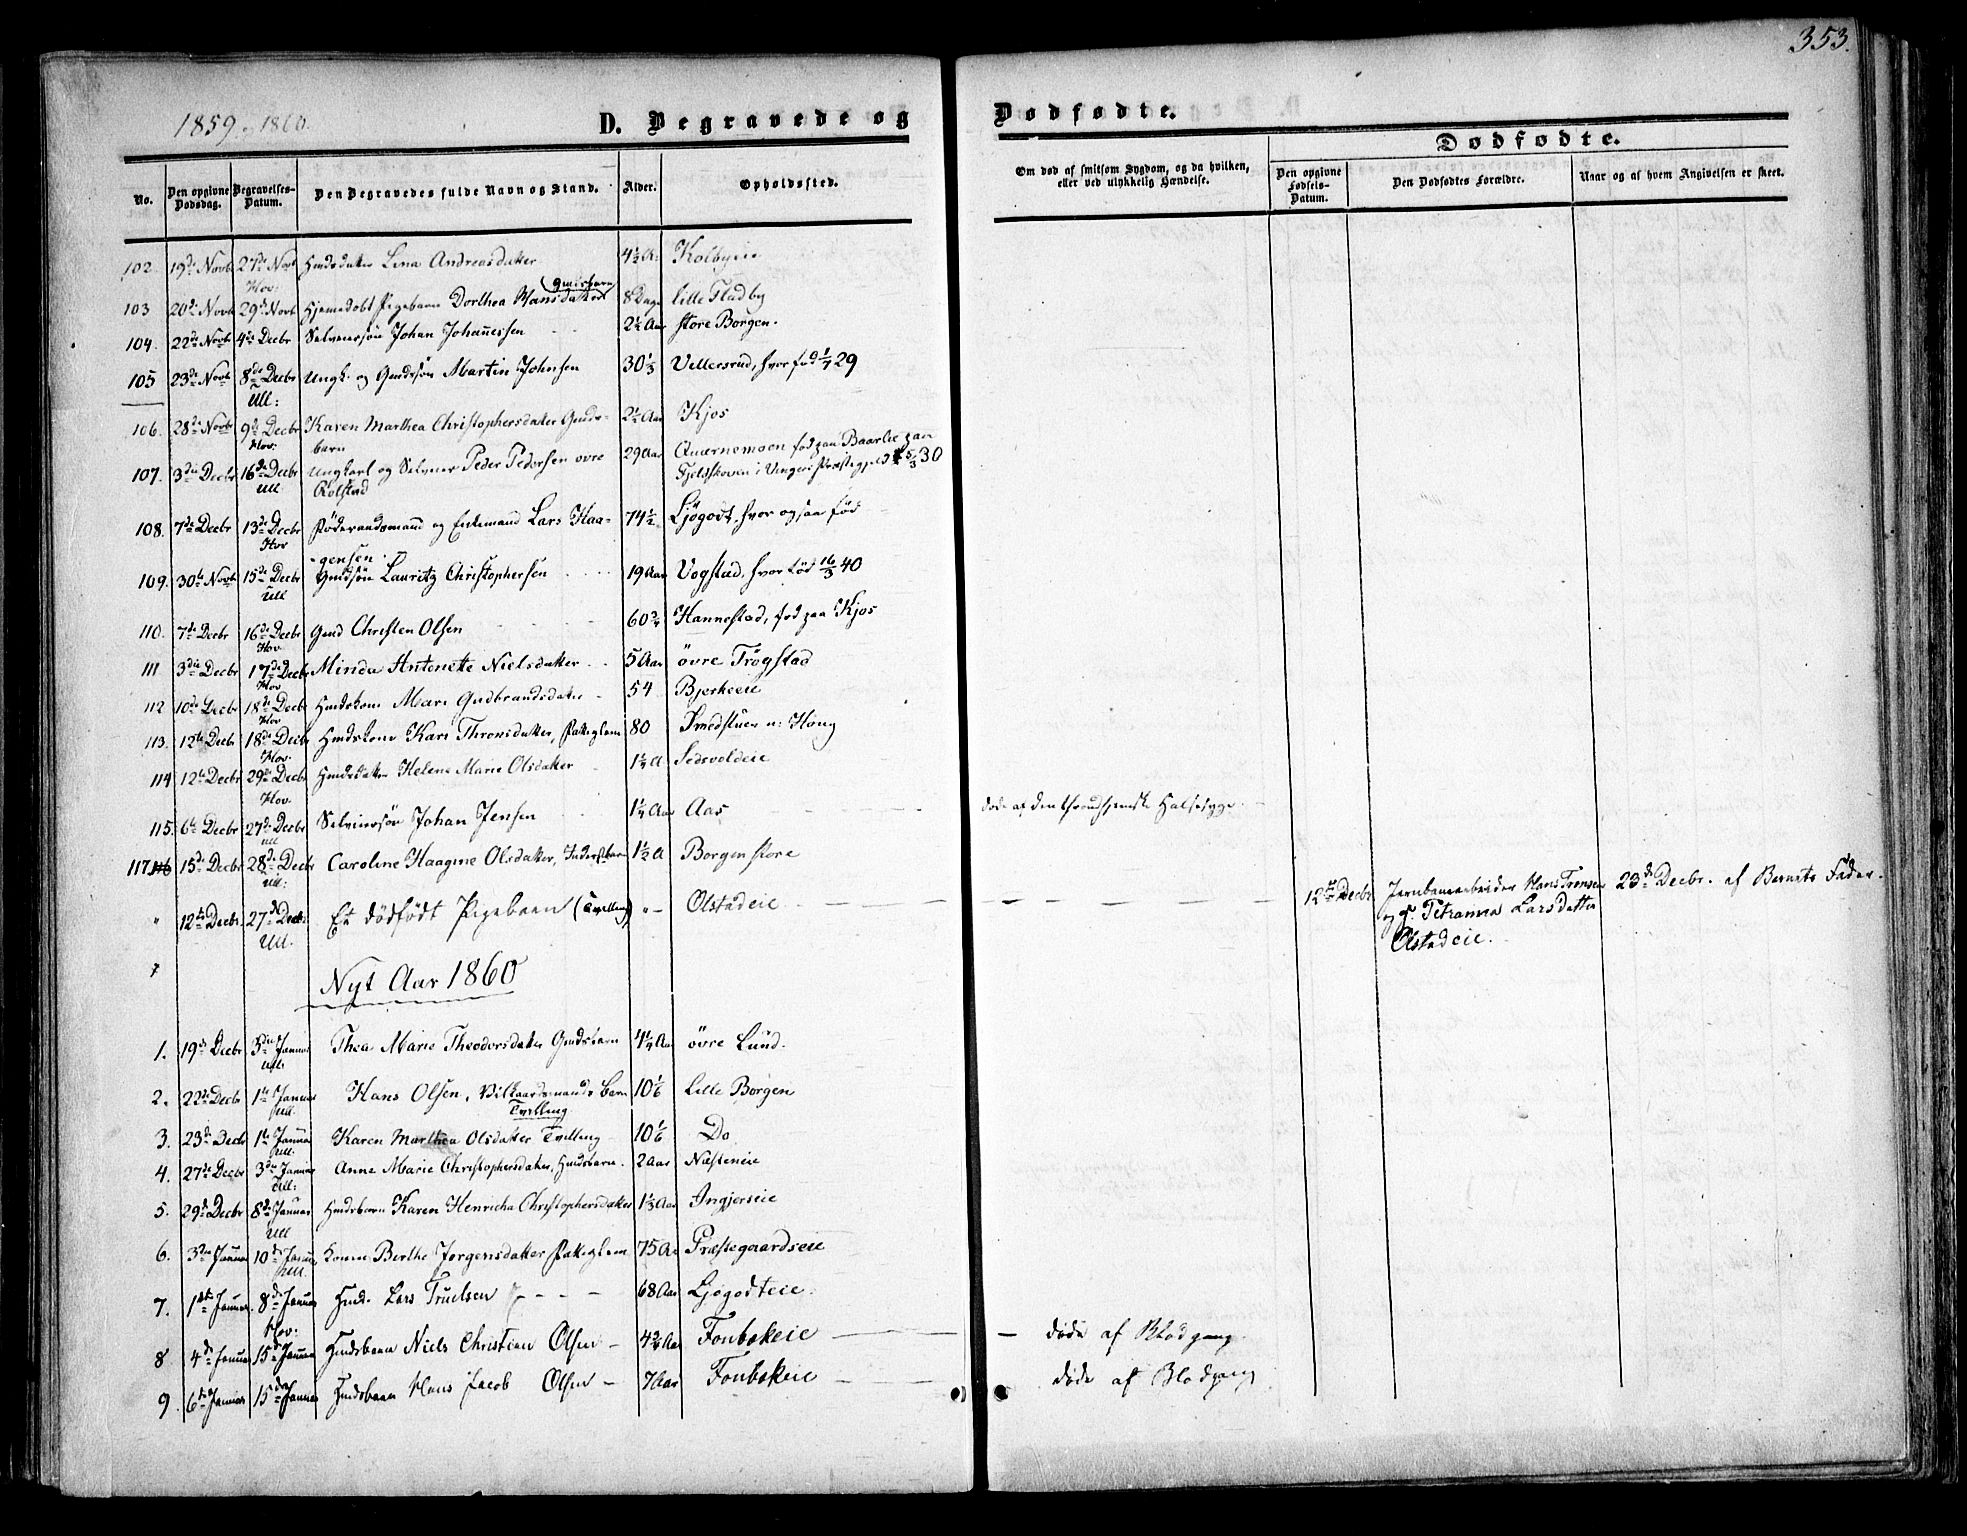 353.
1859 og 1860.
D. Begravede og
Dødfødte.
No.
Den opgivne Dødsdag.
Begravelses-Datum.
Den Begravedes fulde Navn og Stand.
Alder.
Opholdssted.
Om død af smitsom Sygdom, og da hvilken, eller ved ulykkelig Hændelse.
Dødfødte.
Den opgivne Fødsels-Datum.
Den Dødfødtes Forældre.
Naar og af hvem Angivelsen er skeet.
102 19de Novb 27de Novb Hov: Huusdatter Lina Andreasdatter 4½ A. Kolbyeie
103 20de Novb 29de Novb Hjemedøbt Pigebarn Dorthea Hansdatter Gmdsbarn 8 Dage lille Fladby
104. 22de Novb 4de Decbr Selveiersøn Johan Johanessen 2½ Aar store Borgen.
105 23de Novb 8de Decbr Ull: Ungk. og Gmdsøn Martin Johnsen 30 1/3 Vellersrud, hvor fød 1/7 29
106. 28de Novb 9de Decbr Hov. Karen Marthea Christophersdatter Gmds-
barn 2½ Aar Kjos
107. 3die Decbr 16de Decbr Ull Ungkarl og Selveier Peder Pedersen øvre
Rolstad 29 Aar Quærnemoen fød paa Baarlie paa
Fjeldskoven i Vinger Præstegjeld 5/3 30
108. 7de Decbr 13de Decbr Hov Føderaadsmand og Enkemand Lars Haa-
gensen 74½ Ljøgodt, hvor ogsaa fød
109. 30te Novb 15de Decbr Ull Gmdsøn Lauritz Christophersen 19 Aar Vogstad, hvor fød 16/3 40
110. 7de Decbr 16de Decbr Hov. Gmd Christen Olsen 60 3/4 Hannestad, fød paa Kjos
111 3die Decbr 17de Decbr Hov Minda Antonette Nielsdatter 5 Aar øvre Trøgstad
112 10de Decbr 18de Decbr Hov Huuskone Mari Gudbrandsdatter 54 Bjerkeeie
113. 12te Decbr 18de Decbr Hov. Huuskone Kari Thronsdatter, Fattiglem 80 Smedstuen u: Houg
114 12te Decbr 29de Decbr Hov. Huusdatter Helene Marie Olsdatter 1¼ A Sedsvoldeie
115. 6te Decbr 27de Decbr Ull Selveiersøn Johan Jensen 1¼ Aar Aas døde af den ondartede Halssyge
117. 116 15de Decbr 28de Decbr Ull: Caroline Haagine Olsdatter, Inderstbarn 1½ A Borgen store
" 12te Decbr. 27de Decbr. Ull. Et dødfødt Pigebarn (Tvilling) "- Olstadeie 12te Decbr Jernbanearbeider Hans Trønsen
og P. Petranna Larsdatter
Olstadeie. 23de Decbr. af Barnets Fader.
Nyt Aar 1860
1. 19de Decbr 5die Januar Ull. Thea Marie Theodorsdatter Gmdsbarn 4¼ Aar øvre Lund.
2. 22de Decbr 1te Januar Ull. Hans Olsen, Vilkaarsmands barn Tvilling 10 1/6 Lille Borgen
3. 23de Decbr 1te Januar Ull. Karen Marthea Olsdatter Tvilling 10 1/6 Do
4. 27de Decbr 3die Januar Ull: Anne Marie Christophersdatter, Huusbarn. 2 Aar Næsteneie
5. 29de Decbr 8de Januar Ull Huusbarn Karen Henricha Christophersdatter 1⅓ Aar Ingjerseie
6. 3die Januar 10de Januar Ull. Konen Berthe Jørgensdatter Fattiglem 75 Aar Præstegaardseie
7. 1ste Januar. 8de Januar Hov: Huusmd. Lars Truelsen 68 Aar Ljøgodteie.
8 4de Januar 15de Januar Huusbarn Niels Christian Olsen 4¾ Aar Fonbækeie døde af Blodgang.
9. 6te Januar 15de Januar Huusbarn Hans Jacob Olsen 7 Aar Fonbækeie døde af Blodgang